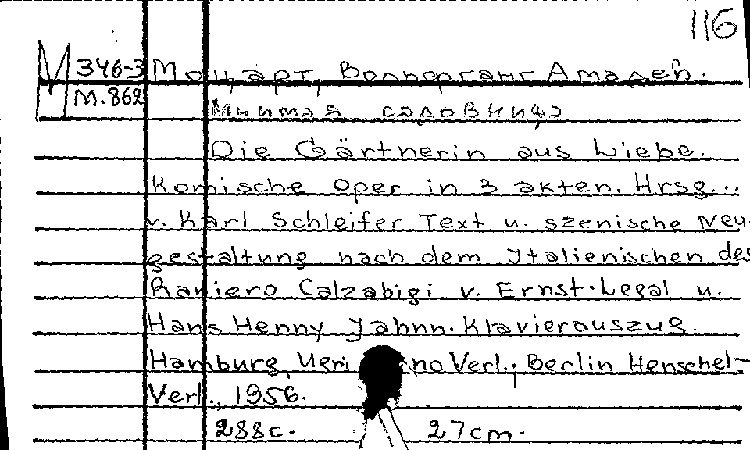 116
М 346-3 Моцарт, Вольфганг Амадей.
М.862 Мнимая садовница
Die Gärtnerin aus Liebe.
Komische Oper in 3 akten. Hrsg..
v. Karl Schleifer Text u. szenische Neu-
gestaltung nach dem Italienischen des
Raniero Calzabigi v. Ernst Legal u.
Hans Henny Jahnn. Klavierauszug
Hamburg, Verl.; Berlin Henschel-
Verl., 1956.
288с. 27cm.